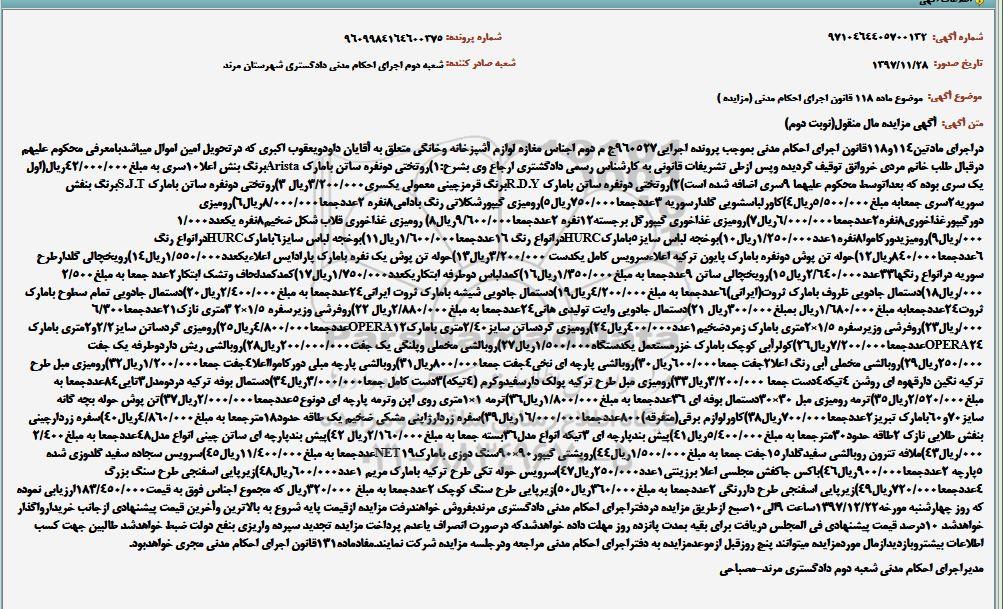 شماره آگهی: ۹۷۱۰۴۶۴۴۰۵۷۰۰۱۳۲ شماره پرونده: ۹۶۰۹۹۸۴۱۶۴۶۰۰۳۷۵
تاریخ صدور: ۱۳۹۷/۱۱/۲۸ شعبه صادر کننده: شعبه دوم اجرای احکام مدنی دادگستری شهرستان مرند
موضوع آگهی: موضوع ماده ۱۱۸ قانون اجرای احکام مدنی (مزایده )
متن آگهی: آگهی مزایده مال منقول(نوبت دوم)
دراجرای مادتین۱۱۴و۱۱۸قانون اجرای احکام مدنی بموجب پرونده اجرایی۹۶۰۵۲۷ج م دوم اجناس مغازه لوازم آشپزخانه وخانگی متعلق به آقایان داودویعقوب اکبری که درتحویل امین اموال میباشدبامعرفی محکوم علیهم
درقبال طلب خانم مردی خروانق توقیف گردیده وپس ازطی تشریفات قانونی به کارشناس رسمی دادگستری ارجاع وی بشرح:۱)روتختی دونفره ساتن بامارک Aristaبرنگ بنفش اعلا۱۰سری به مبلغ۴۲/۰۰۰/۰۰۰ریال(اول
یک سری بوده که بعداتوسط محکوم علیهما ۹سری اضافه شده است)۲)روتختی دونفره ساتن بامارک R.D.Yبرنگ قرمزچینی معمولی یکسری۳/۲۰۰/۰۰۰ریال ۳)روتختی دونفره ساتن بامارک S.J.Tبرنگ بنفش
سوریه۲سری جمعابه مبلغ۵/۵۰۰/۰۰۰ریال۴)کاورلباسشویی گلدارسوریه ۳عددجمعا۷۵۰/۰۰۰ریال۵)رومیزی گیپورشکلاتی رنگ بادامی۸نفره ۲عددجمعا۸/۰۰۰/۰۰۰ریال۶)رومیزی
دورگیپورغذاخوری۸نفره۲عددجمعا۶/۰۰۰/۰۰۰ریال۷)رومیزی غذاخوری گیپورگل برجسته۱۲نفره ۲عددجمعا۹/۶۰۰/۰۰۰ریال۸) رومیزی غذاخوری قلاب شکل ضخیم۸نفره یکعدد۱/۰۰۰
۰۰۰/ریال۹)رومیزیدورکاموا۸نفره۱عدد۱/۲۵۰/۰۰۰ریال۱۰)بوخجه لباس سایز۵بامارکHURCدرانواع رنگ ۱۶عددجمعا۱/۶۰۰/۰۰۰ریال۱۱)بوخجه لباس سایز۶بامارکHURCدرانواع رنگ
۶عددجمعا۸۴۰/۰۰۰ریال۱۲)حوله تن پوش دونفره بامارک پایون ترکیه اعلاءسرویس کامل یکدست ۳/۲۰۰/۰۰۰ریال۱۳)حوله تن پوش یک نفره بامارک پارادایس اعلاءیکعدد۱/۵۵۰/۰۰۰ریال۱۴)رویخچالی گلدارطرح
سوریه درانواع رنگها۳۳عدد۲/۶۴۰/۰۰۰ریال۱۵)رویخچالی ساتن ۹عددجمعا به مبلغ۱/۳۵۰/۰۰۰ریال۱۶)کمدلباس دوطرفه ابتکاریکعدد۱/۷۵۰/۰۰۰ریال۱۷)کمدکمدلحاف وتشک ابتکار۲عدد جمعا به مبلغ۲/۵۰۰
۰۰۰/ریال۱۸)دستمال جادویی ظروف بامارک ثروت(ایرانی)۶عددجمعا به مبلغ ۴/۲۰۰/۰۰۰ریال۱۹)دستمال جادویی شیشه بامارک ثروت ایرانی۲۴عددجمعا به مبلغ۲/۴۰۰/۰۰۰ریال۲۰)دستمال جادویی تمام سطوح بامارک
ثروت۲۴عددجمعابه مبلغ۱/۶۸۰/۰۰۰ریال بمبلغ۳۰۰/۰۰۰ریال ۲۱)دستمال جادویی وایت تولیدی هانی۲۴عددجمعا به مبلغ۲/۸۸۰/۰۰۰ریال ۲۲)روفرشی وزیرسفره ۱/۵×۲ ۳متری نازک۲۱عددجمعا۶/۳۰۰
۰۰۰/ریال۲۳)روفرشی وزیرسفره ۱/۵×۲متری بامارک زمردضخیم۱عدد۴۰۰/۰۰۰ریال۲۴)رومیزی گردساتن سایز۲/۴۰متری بامارک۱۲OPERAعددجمعا۴/۸۰۰/۰۰۰ریال۲۵)رومیزی گردساتن سایز۲/۲و۲متری بامارک
OPERA۲۴عددجمعا۷/۲۰۰/۰۰۰ریال۲۶)کولرآبی کوچک بامارک خزرمستعمل یکدستگاه۱/۵۰۰/۰۰۰ریال۲۷)روبالشی مخملی وپلنگی یک جفت۲۰۰/۰۰۰ریال۲۸)روبالشی ریش داردوطرفه یک جفت
۲۵۰/۰۰۰ریال۲۹)روبالشی مخملی آبی رنگ اعلا۲جفت جمعا۶۰۰/۰۰۰ریال۳۰)روبالشی پارچه ای نخی۴جفت جمعا۸۰۰/۰۰۰ریال۳۱)روبالشی پارچه مبلی دورکاموااعلا۴جفت جمعا۱/۲۰۰/۰۰۰ریال۳۲)رومیزی مبل طرح
ترکیه نگین دارقهوه ای روشن ۴تیکه۴دست جمعا ۳/۲۰۰/۰۰۰ریال۳۳)رومیزی مبل طرح ترکیه پولک دارسفیدوکرم (۴تیکه)۳دست کامل جمعا۳/۰۰۰/۰۰۰ریال۳۴)دستمال بوفه ترکیه دردومدل۳تایی۸۴عددجمعا به
مبلغ۲/۵۲۰/۰۰۰ریال۳۵)ترمه رومیزی مبل ۳۰×۳۰دستمال بوفه ای ۳۶عددجمعا به مبلغ۱/۸۰۰/۰۰۰ریال۳۶)ترمه ۱×۱متری روی اپن وترمه پارچه ای دونوع۵عددجمعا۲/۰۰۰/۰۰۰ریال۳۷)تن پوش حوله بچه گانه
سایز۷۰و۶۰بامارک تبریز۲عددجمعا۷۰۰/۰۰۰ریال۳۸)کاورلوازم برقی(متفرقه)۸۰عددجمعا۱۶/۰۰۰/۰۰۰ریال۳۹)سفره زردارژاپنی مشکی ضخیم یک طاقه حدود۱۸مترجمعا به مبلغ۴/۸۶۰/۰۰۰ریال۴۰)سفره زردارچینی
بنفش طلایی نازک ۲طاقه حدود۳۰مترجمعا به مبلغ۵/۴۰۰/۰۰۰ریال۴۱)پیش بندپارچه ای ۳تیکه انواع مدل۳۶بسته جمعا به مبلغ۲/۱۶۰/۰۰۰ریال ۴۲)پیش بندپارچه ای ساتن چینی انواع مدل۴۸عددجمعا به مبلغ۲/۴۰۰
۰۰۰/ریال۴۳)ملافه تترون روبالشی سفیدگلدار۱۵جفت جمعا به مبلغ۱/۵۰۰/۰۰۰ریال۴۴)روپشتی گیپور۹۰×۹۰سنگ دوزی بامارک۱۹NETعددجمعا به مبلغ۱۱/۴۰۰/۰۰۰ریال۴۵)سرویس سجاده سفید گلدوزی شده
۵پارچه ۲عددجمعا۹۰۰/۰۰۰ریال۴۶)باکس جاکفش مجلسی اعلا برزینتی۱عدد۲۵۰/۰۰۰ریال۴۷)سرویس حوله تکی طرح ترکیه بامارک مریم ۱عدد۶۰۰/۰۰۰ریال۴۸)زیرپایی اسفنجی طرح سنگ بزرگ
۴عددجمعا۷۲۰/۰۰۰ریال۴۹)زیرپایی اسفنجی طرح داررنگی ۲عددجمعا به مبلغ۳۶۰/۰۰۰ریال۵۰)زیرپایی طرح سنگ کوچک ۲عددجمعا به مبلغ ۳۲۰/۰۰۰ریال که مجموع اجناس فوق به قیمت۱۸۳/۴۵۰/۰۰۰ارزیابی نموده
که روز چهارشنبه مورخه۱۳۹۷/۱۲/۲۲ساعت ۹الی۱۰صبح ازطریق مزایده دردفتراجرای احکام مدنی دادگستری مرندبفروش خواهدرفت مزایده ازقیمت پایه شروع به بالاترین وآخرین قیمت پیشنهادی ازجانب خریدارواگذار
خواهدشد ۱۰درصد قیمت پیشنهادی فی المجلس دریافت برای بقیه بمدت پانزده روز مهلت داده خواهدشدکه درصورت انصراف یاعدم پرداخت مزایده تجدید سپرده واریزی بنفع دولت ضبط خواهدشد طالبین جهت کسب
اطلاعات بیشتروبازدیدازمال موردمزایده میتوانند پنج روزقبل ازموعدمزایده به دفتراجرای احکام مدنی مراجعه ودرجلسه مزایده شرکت نمایند.مفادماده۱۳۱قانون اجرای احکام مدنی مجری خواهدبود.
مدیراجرای احکام مدنی شعبه دوم دادگستری مرند-مصباحی